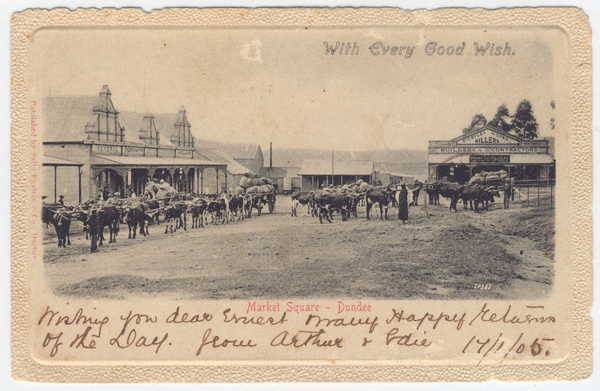 With Every Good Wish.
HILLERY
BUILDERS & CONTRACTORS
Market Square - Dundee
Wishing you dear Ernest Many Happy Returns
of the Day. From Arthur & Edie 17/1/05.
Published by